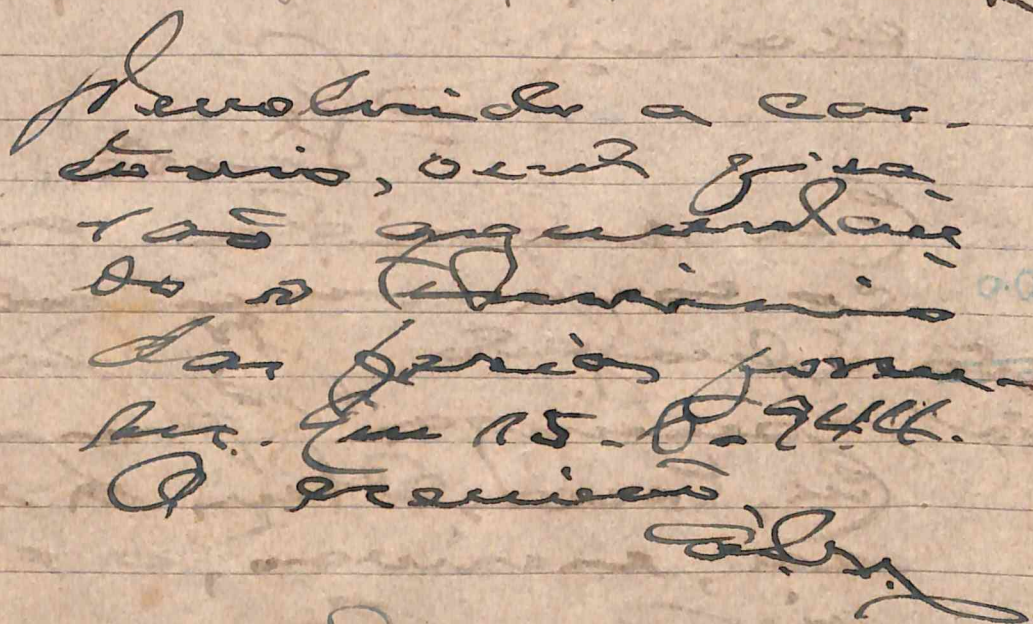 Devolvido a car-
tório, onde fica-
rão aguardan-
do o
das férias foren-
ses. Em
O escrivão,